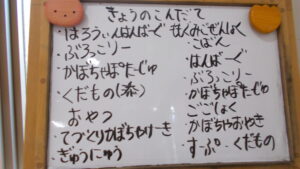 きょうのこんだて
・はろうぃんはんばーぐ
・ぶろっこりー
・かぼちゃぽたーじゅ
・くだもの(添)
おやつ
・てづくりかぼちゃけーき
・ぎゅうにゅう
こばん
・はんばーぐ
・ぶろっこりー
・かぼちゃぽたーじゅ
ごごしょく
・かぼちゃおやき
・すーぷ・くだもの